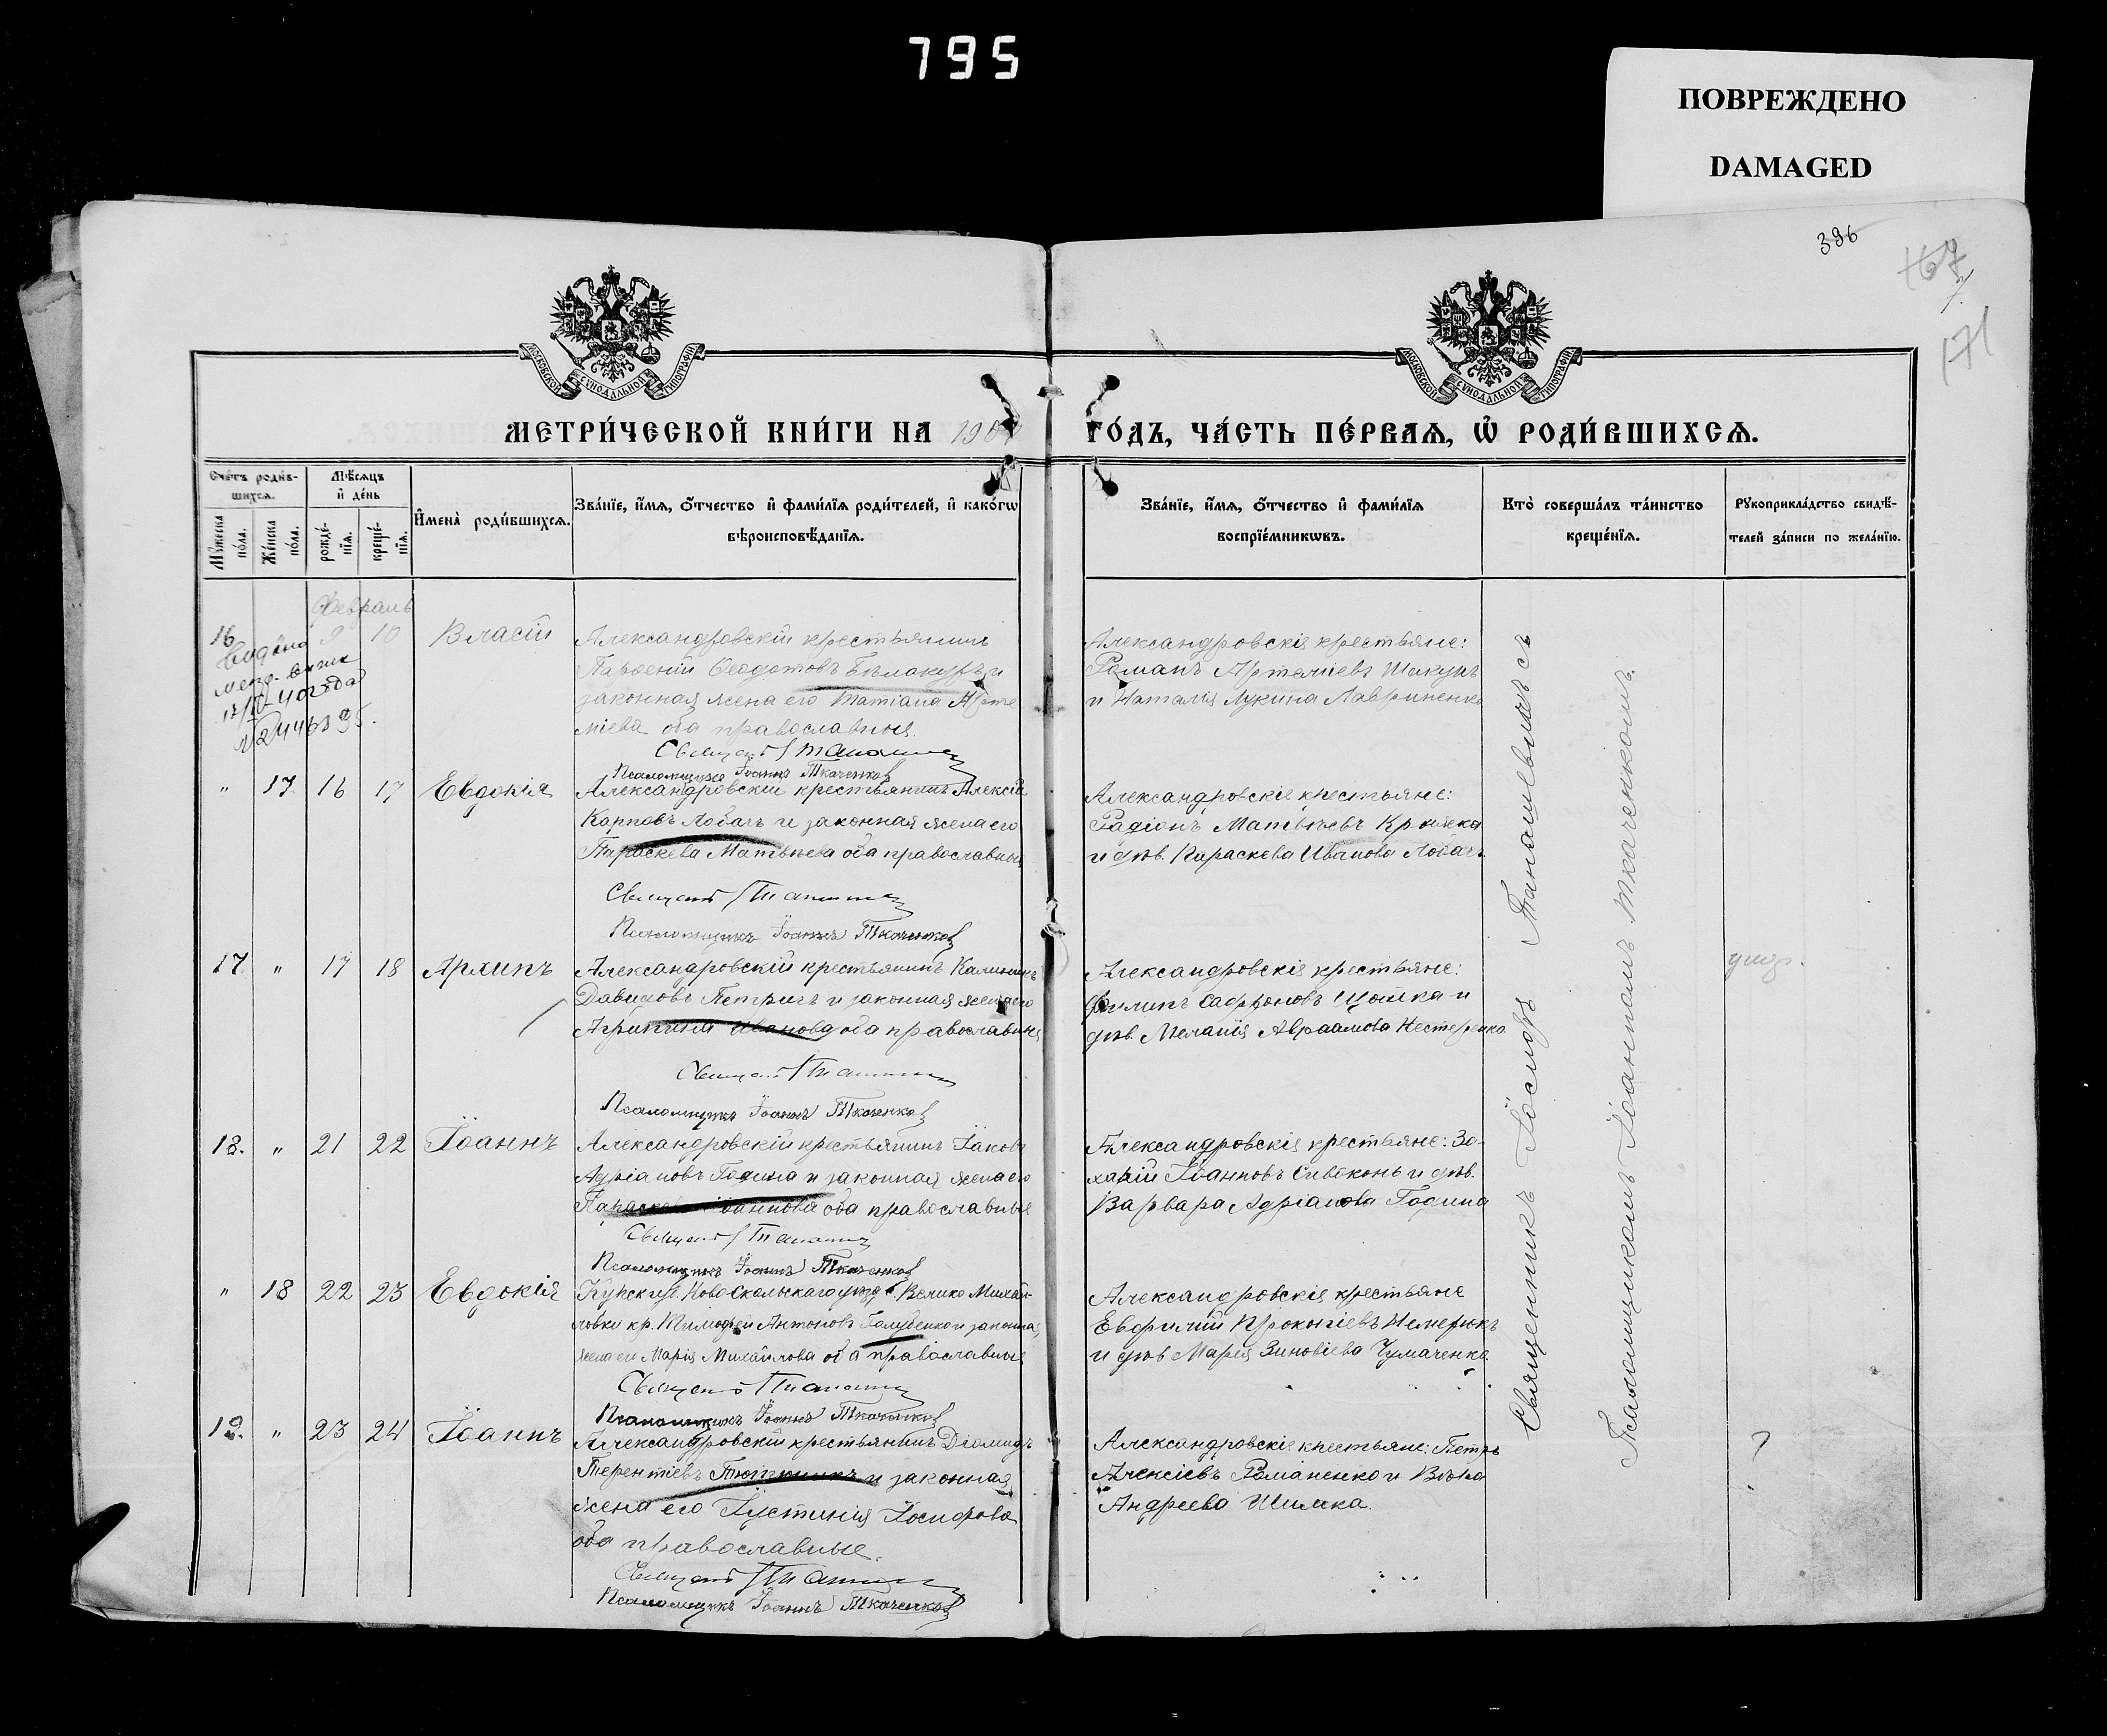 795
ПОВРЕЖДЕНО
DAMAGED
396
167
171
МОСКОВСКОЙ СѴНОДАЛЬНОЙ ТИПОГРАФІИ
МОСКОВСКОЙ СѴНОДАЛЬНОЙ ТИПОГРАФІИ
МЕТРИ́ЧЕСКОЙ КНИ́ГИ НА 190
ГО́ДЪ, ЧА́СТЬ ПЕ́РВАѦ, Ѡ҆ РОДИ́ВШИХСѦ.
Сче́тъ роди́в-
шихсѧ.
Мꙋ́жеска по́ла.
Же́нска по́ла.
Мѣ́сѧцъ
и҆ де́нь
рожде́-
нїѧ.
креще́-
нїѧ.
И҆мена̀ роди́вшихсѧ.
Зва́нїе, и҆́мѧ, ѻ҆́тчество и҆ фами́лїѧ роди́телей, и҆ како́гѡ
вѣроисповѣ́данїѧ.
Зва́нїе, и҆́мѧ, ѻ҆́тчество и҆ фами́лїѧ
воспрїе́мникѡвъ.
Кто̀ соверша́лъ та́инство
креще́нїѧ.
Рꙋкоприкла́дство свидѣ́-
телей за́писи по жела́нїю.
Февраль
16 9 10 Власій
Выдана
метр. выпис
17/IV-402 года
№244639
Александровскій крестьянинъ
Парѳеній Ѳеодотовъ Бѣлакуръ и
законная жена его Татіана Арте
міева оба православные.
Священ Танаш
Псаломщикъ Іоаннъ Ткаченков
Александровскіе крестьяне:
Романъ Артеміевъ Шакунъ
и Наталія Лукина Лавриненко
" 17 16 17 Евдокія
Александровскій крестьянинъ Алексій
Карповъ Лобачъ и законная жена его
Параскева Матвѣева оба православные
Священ
Псаломщикъ Іоаннъ Ткаченков
Александровскіе крестьяне:
Радіонъ Матвѣевъ
и дѣв. Параскева Иванова Лобачъ.
17 " 17 18 Архипъ
Александровскій крестьянинъ Калиникъ
Давидовъ Петричъ и законная жена его
Агрипина Иванова оба православные
Священ
Псаломщикъ Іоаннъ Ткаченков
Александровскіе крестьяне:
Филипъ Сафроновъ и
дѣв. Меланія Авраамова Нестеренко
умер.
18. " 21 22 Іоаннъ
Александровскій крестьянинъ Іаковъ
Адріановъ Година и законная жена его
Параскева Іоаннова оба православные
Священ
Псаломщикъ Іоаннъ Ткаченков
Александровскіе крестьяне: За-
харій Іоанновъ Сивоконь и дѣв.
Варвара Адріанова Година
" 18 22 23 Евдокія
Курск губ. Новоскольскаго уезд с. Велико Михай-
ловки кр. Тимофей Антоновъ Голубенко и законная
жена его Марія Михайлова оба православные
Священ
Псаломщикъ Іоаннъ Ткаченков
Александровскіе крестьяне
Евфимій Прокопіевъ Немерюкъ
и дѣв Марія Зиновіева Чумаченко.
19. " 23 24 Іоаннъ
Александровскій крестьянинъ Діомидъ
Терентіевъ и законная
жена его Іустинія Іосифова
оба православные.
Священ
Псаломщикъ Іоаннъ Ткаченков
Александровскіе крестьяне: Петръ
Алексіевъ Романенко и Вѣра
Андреева Шимка.
?
Священникъ Іосифъ съ
Псаломщикомъ Іоанномъ Ткаченкомъ.